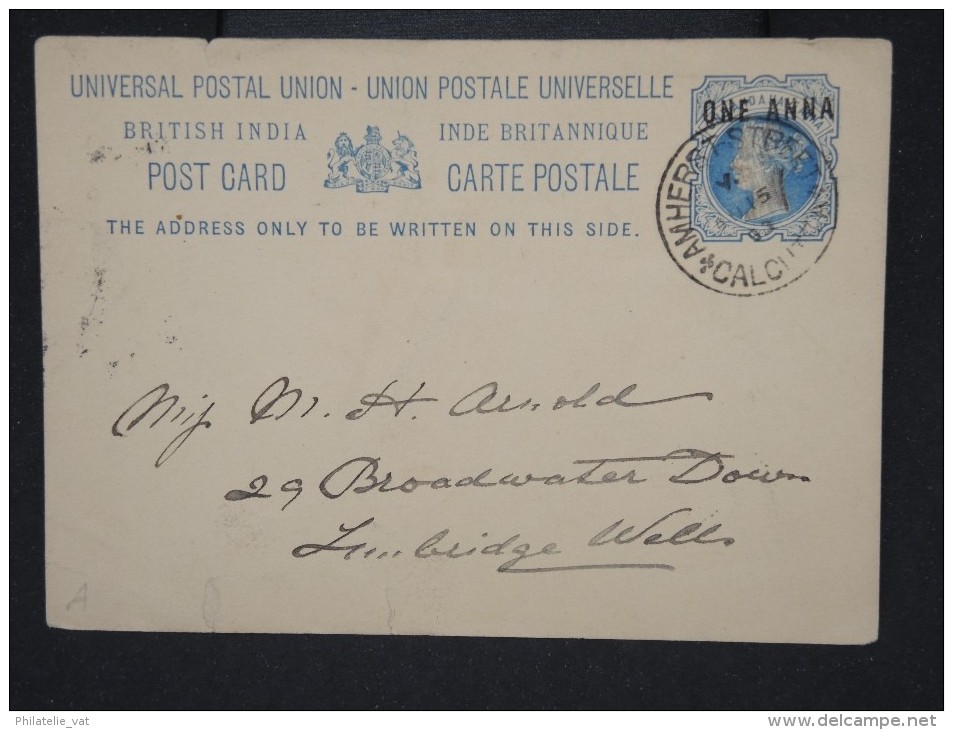 UNIVERSAL POSTAL UNION - UNION POSTALE UNIVERSELLE
BRITISH INDIA INDE BRITANNIQUE
POST CARD CARTE POSTALE
THE ADDRESS ONLY TO BE WRITTEN ON THIS SIDE.
ONE ANNA
AMHERST STREET
15
93
CALCUTTA
Miss M. H. Arnold
29 Broadwater Down
Tunbridge Wells
A
Philatelie_vat
www.delcampe.net